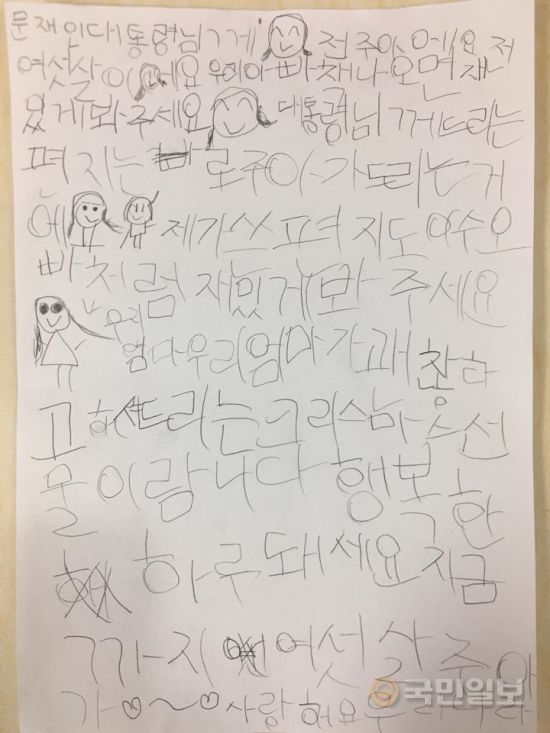 문재인대통령님ㄱ게 전 주아에요 저
여섯살이에요 우리아빠채나오면재
있게봐주세요 대통령님 ㄱ께드리는
편지는 로주아가드리는거
에 제가쓰펴지도 야수오
빠처럼 재밌게봐 주세요
우리
엄마우리엄마가괘찮하
고 하 드리는크리스마수선
물이람니다 행복한
하루돼세요지금
ㄱ가지 여섯살주아
가♡~♡사랑해요
국민일보